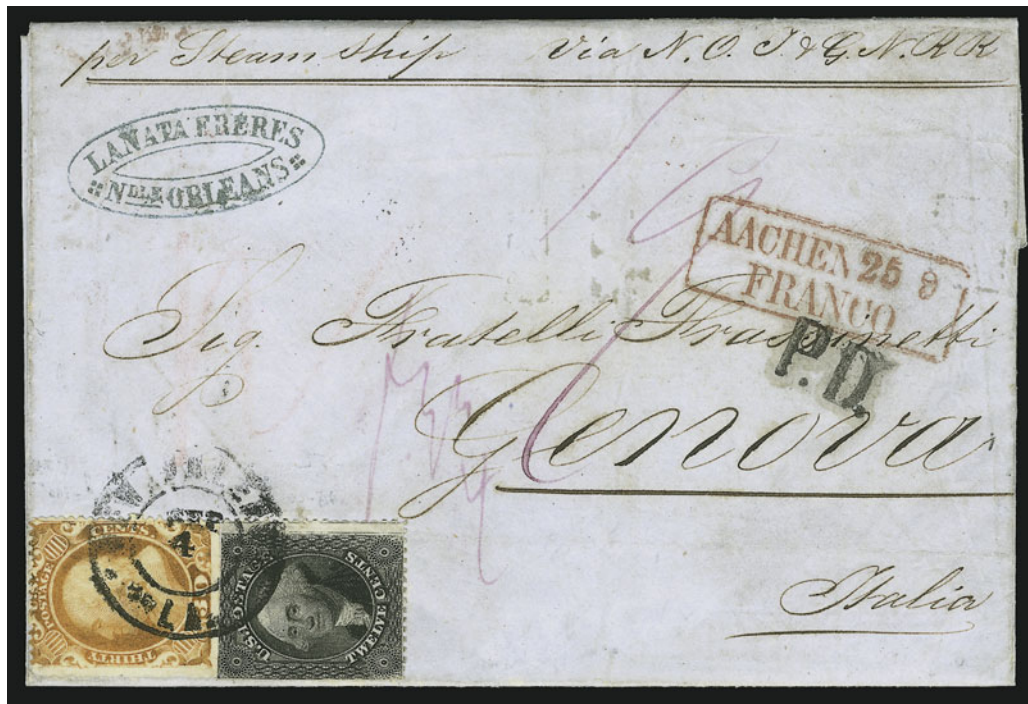 per Steam Ship Via N. O. J & G. N. R R
LANATA FRERES
NDLE ORLEANS
AACHEN 25 9
FRANCO
P.D.
Sig. Fratelli Frassinetti
Genova
Italia
4
POSTAGE
CENTS.
THIRTY
U.S. POSTAGE
TWELVE CENTS